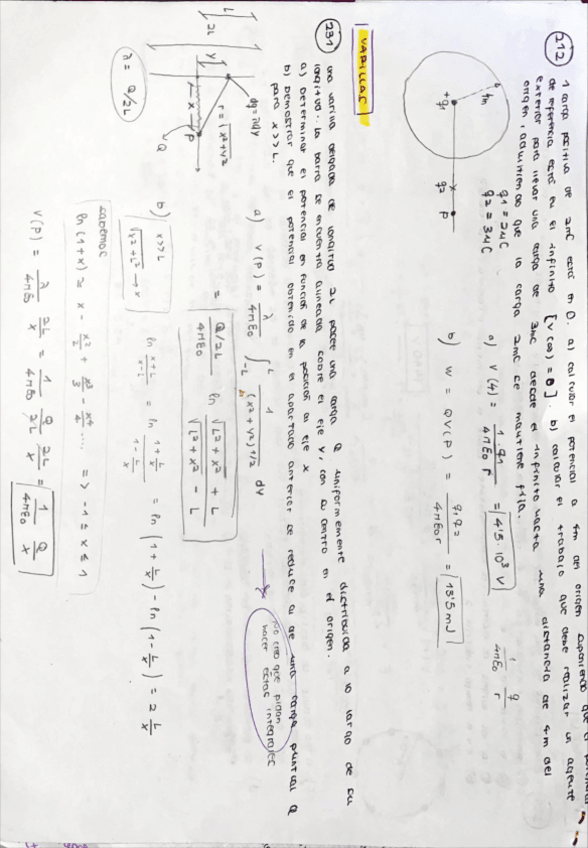 212 1 carga positiva de 2mC está en 0. a) calcular el potencial a 4m del origen suponiendo que el
de referencia está en el infinito [V(∞) = 0]. b) calcular el trabajo que debe realizar un agente
exterior para llevar una carga de 3mC desde el infinito hasta una distancia de 4m del
origen, admitiendo que la carga 2mC se mantiene fija.
4m
+q1
q2
x
P
q1 = 2μC
q2 = 3μC
a) V(4) = 1·q1 / 4πε0 r = 4'5·10³ V
1/4πε0 q/r
b) W = QV(P) = q1q2 / 4πε0r = 13'5 mJ
VARILLAS
231 una varilla delgada de longitud 2L posee una carga Q uniformemente distribuida a lo largo de su
longitud. la barra se encuentra alineada sobre el eje Y con su centro en el origen.
a) Determinar el potencial en función de la posición al eje x
b) Demostrar que el potencial obtenido en el apartado anterior se reduce a de una carga puntual Q
para x>>L.
L
2L
Y
dq = λdy
r = √x²+y²
x
P
Q
λ = Q/2L
a) V(P) = λ/4πε0 ∫-L^L 1/(x²+y²)^1/2 dy
= Q/2L / 4πε0 ln √L²+x² + L / √L²+x² - L
no creo que pidan
hacer estas integrales
b) x>>L
√x²+L² → x
ln x+L/x-L = ln 1+L/x / 1-L/x = ln(1+L/x) - ln(1-L/x) = 2 L/x
sabemos
ln(1+x) = x - x²/2 + x³/3 - x⁴/4 .... => -1 ≤ x ≤ 1
V(P) = λ/4πε0 2L/x = 1/4πε0 Q/2L 2L/x = 1/4πε0 Q/x